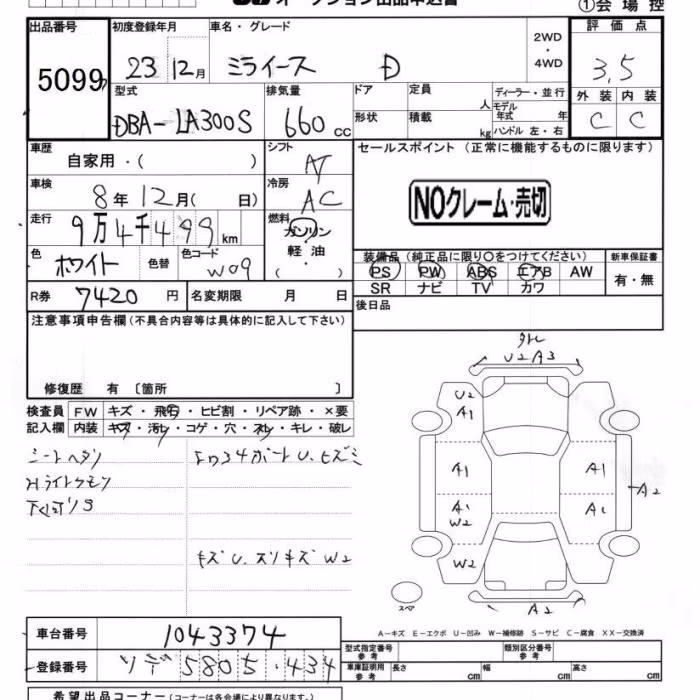 オークション出品申込書
①会場控
出品番号 初度登録年月 車名・グレード 2WD・4WD 評価点
5099 23 12月 ミライース D 3.5
型式 排気量 ドア 定員 人 ディーラー・並行 外装 内装
DBA-LA300S 660cc 形状 積載 kg モデル年式 年 ハンドル 左・右 C C
車歴 自家用・( ) シフト AT セールスポイント (正常に機能するものに限ります)
車検 8年12月( 日) 冷房 AC NOクレーム・売切
走行 9万4千499km 燃料 ガソリン 軽油 ( )
色 ホワイト 色替 色コード W09 装備品 (純正品に限り○をつけてください) 新車保証書
PS PW ABS エアB AW 有・無
R券 7420円 名変期限 月 日 SR ナビ TV カワ
注意事項申告欄(不具合内容等は具体的に記入して下さい) 後日品
修復歴 有 〔箇所 〕
U2 A3
検査員 FW キズ・飛石・ヒビ割・リペア跡・×要
記入欄 内装 キズ・汚レ・コゲ・穴・スレ・キレ・破レ
U2
A1
シートヘタリ
Hライトクモリ
下廻りS
A1 A1
A2
A1 W2 A1
キズU.スリキズW2
W2
スペア A2
A-キズ E-エクボ U-凹み W-補修跡 S-サビ C-腐食 XX-交換済
車台番号 1043374
型式指定番号 参考 類別区分番号 参考
登録番号 5805・434
車庫証明用 参考 長さ cm 幅 cm 高さ cm
希望出品コーナー(コーナーは各会場により異なります。)